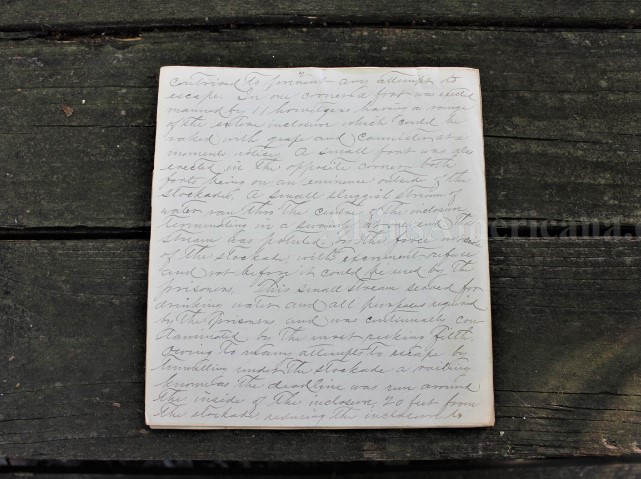 contrived to prevent any attempt to
escape. In one corner a fort was erected
manned by 11 howitzers having a range
of the entire inclosure which could be
raked with grape and cannister at a
moments notice. A small fort was also
erected in the opposite corner both
forts being on an eminence outside of the
Stockade. A small sluggish stream of
water ran thro the centre of the inclosure
terminating in a swamp at one end. The
stream was poluted by the force
of the stockade with excrement refuse
and not before it could be used by the
prisoners. This small stream served for
drinking water and all purposes required
by the Prisoners and was continually con
taminated by the most reeking filth.
Owing to many attempts to escape by
tunnelling under the stockade a railing
known as the deadline was run around
the inside of the inclosure 20 feet from
the stockade reducing the inclosure to
americana.co